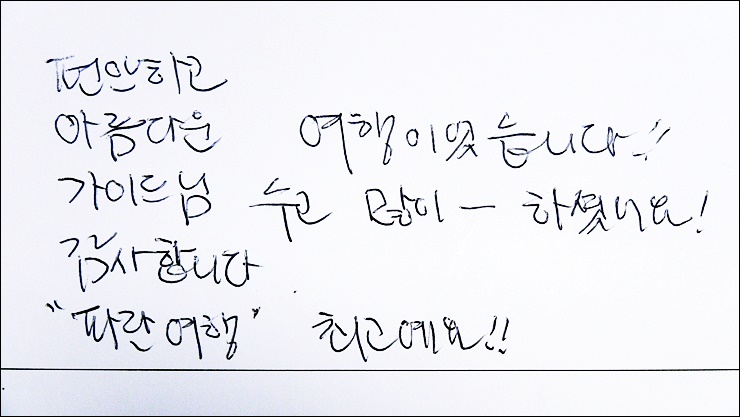 편안하고
아름다운 여행이였습니다!!
가이드님 수고 많이 - 하셨어요!
감사합니다
"파란여행" 최고예요!!